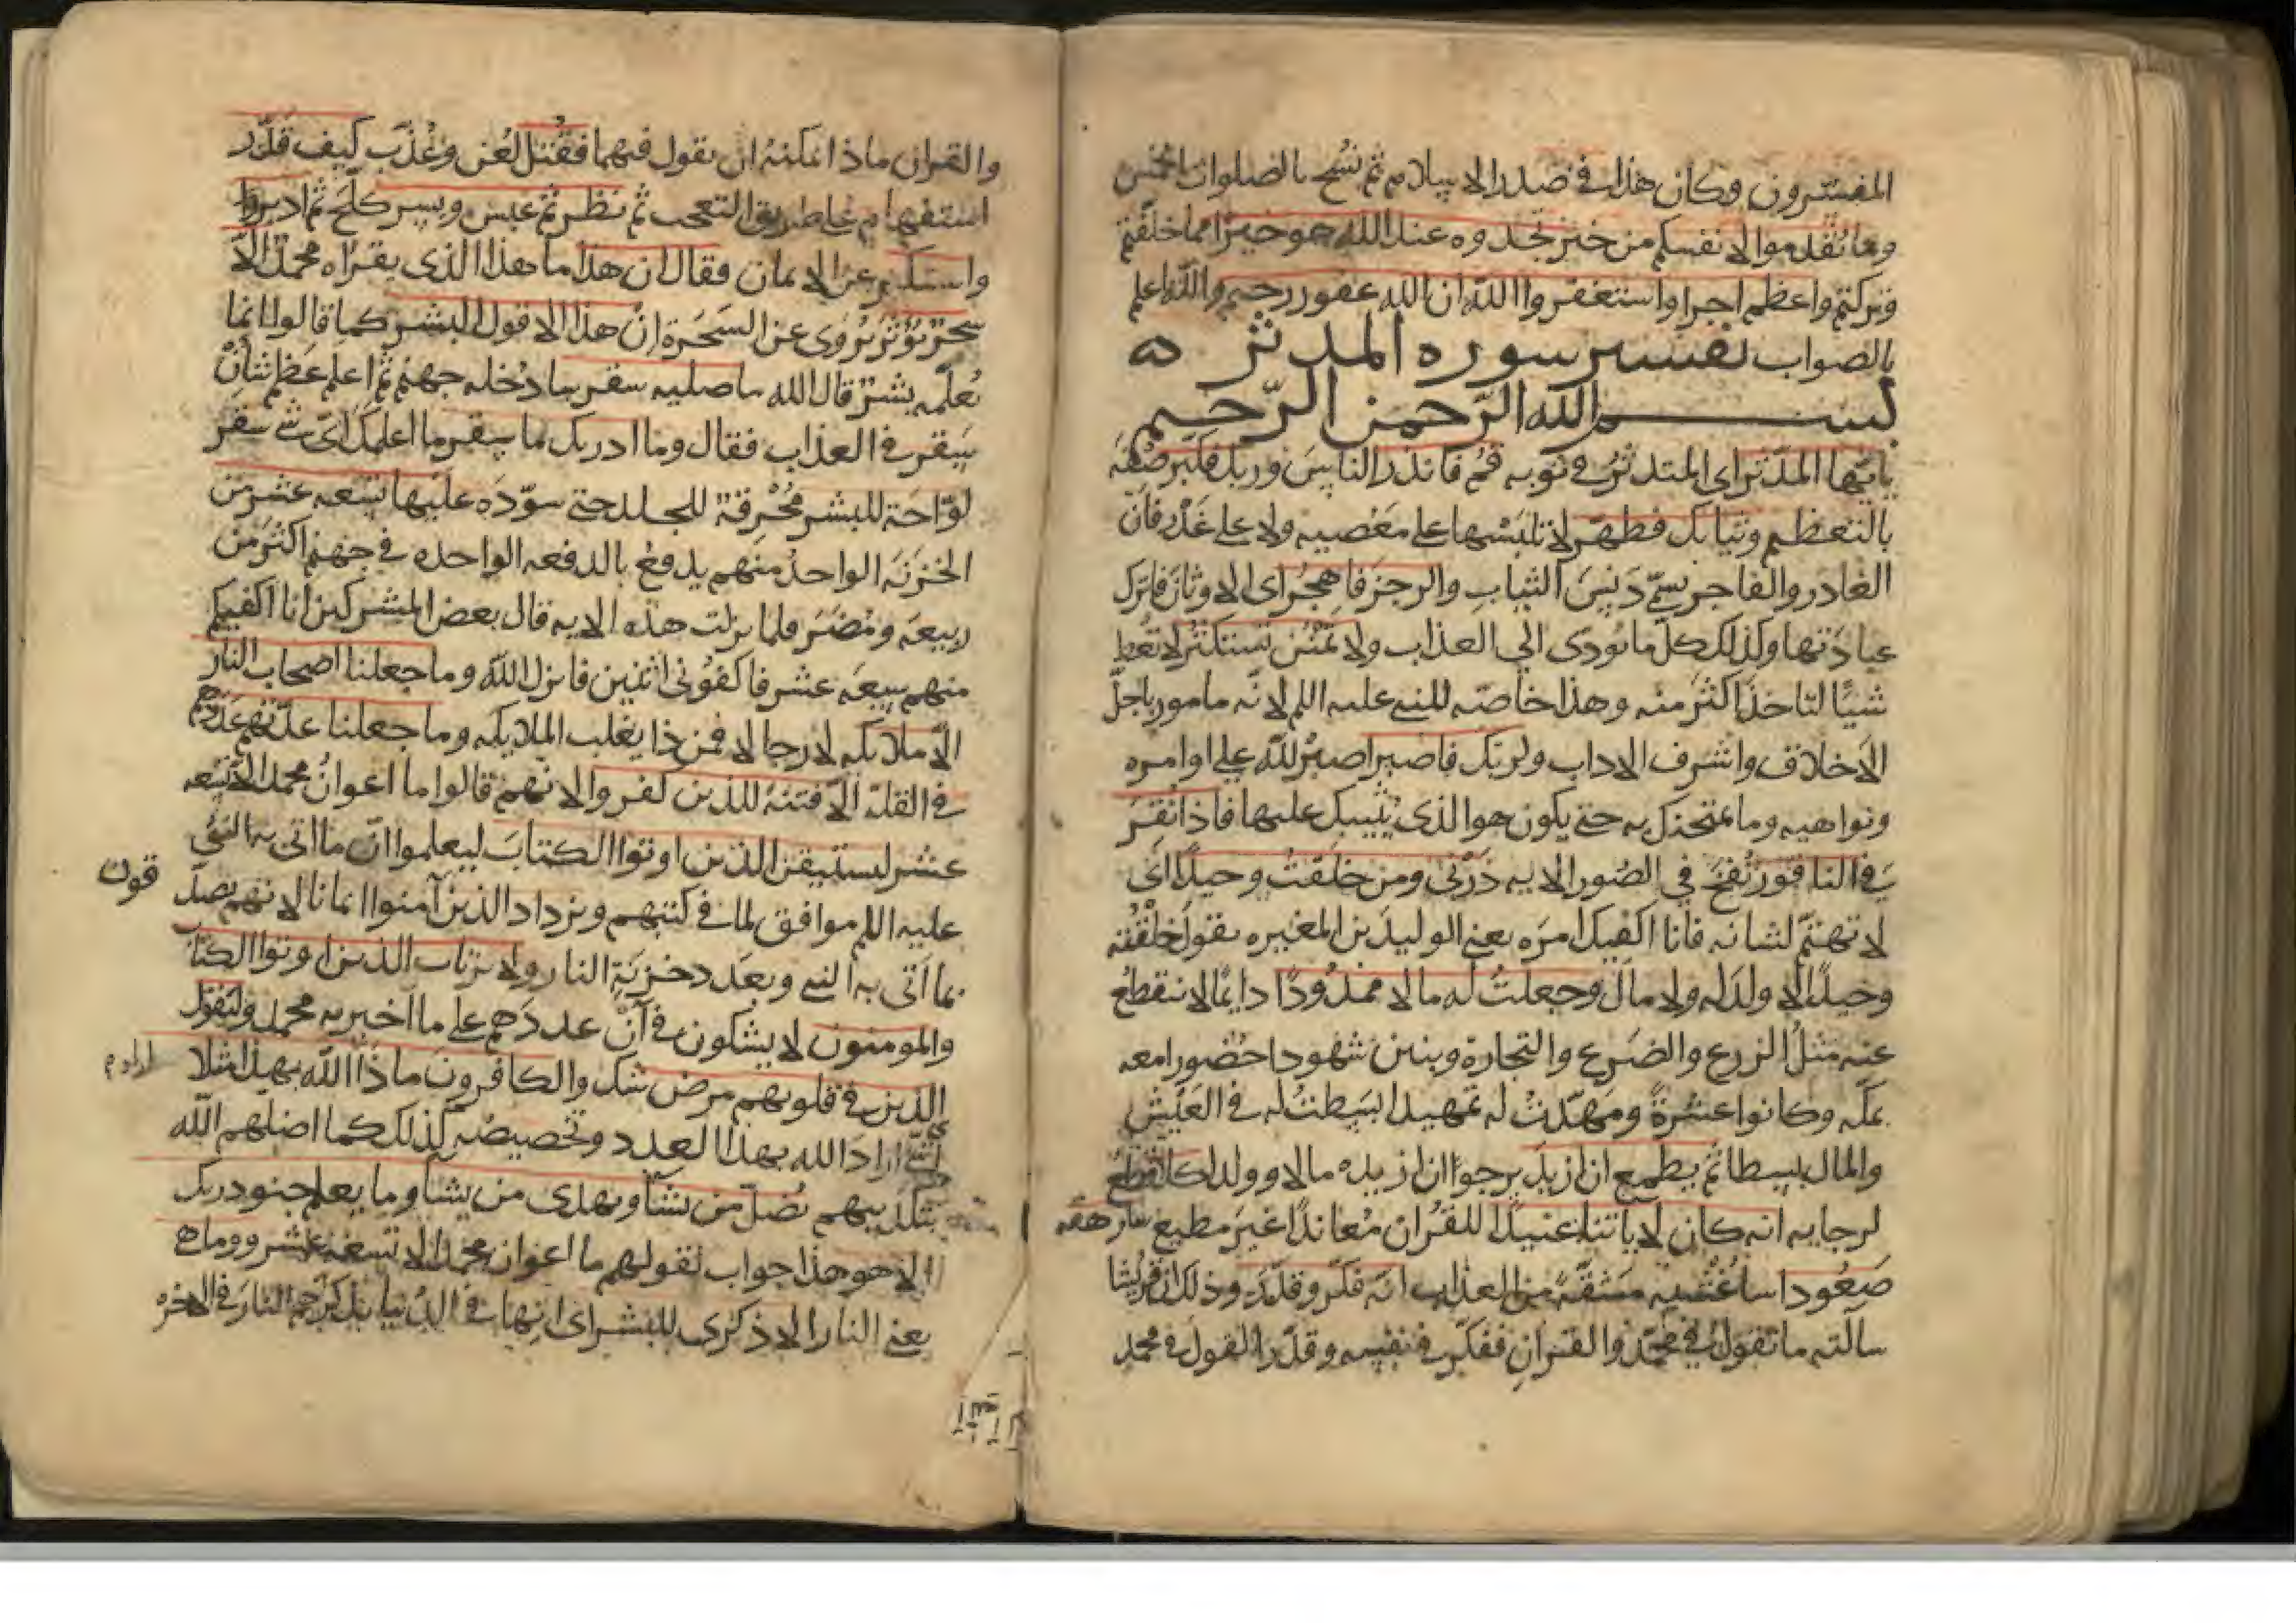 المفسرون وكان هذا في صدر الاسلام ثم نسخ بالصلوات الخمس
وما تقدموا لانفسكم من خير تجدوه عند الله هو خيرا مما خلفتم
وتركتم واعظم اجرا واستغفروا الله ان الله غفور رحيم والله اعلم
بالصواب تفسير سوره المدثر
بسم الله الرحمن الرحيم
يايها المدثر اى المتدثر في ثوبه قم فانذر الناس وربك فكبر صفه
بالتعظيم وثيابك فطهر لا تلبسها على معصيه ولا على غدر فان
الغادر والفاجر يسمى دنس الثياب والرجز فاهجر اى الاوثان فاترك
عبادتها وكذلك كل ما يودى الى العذاب ولا تمنن تستكثر لا تعط
شيا لتاخذ اكثر منه وهذا خاصه للنبي عليه اللم لانه مامور باجل
الاخلاق واشرف الاداب ولربك فاصبر اصبر لله على اوامره
ونواهيه وما يمتحنك به حتى يكون هو الذى يثيبك عليها فاذا نقر
في الناقور نفخ في الصور الايه ذرنى ومن خلقت وحيدا اى
لا تهتم لشانه فانا اكفيك امره يعنى الوليد بن المغيره يقول خلقته
وحيدا لا ولد له ولا مال وجعلت له مالا ممدودا دايما لا ينقطع
عنه مثل الزرع والضرع والتجارة وبنين شهودا حضورا معه
بمكه وكانوا عشرة ومهدت له تمهيدا بسطت له في العيش
والمال بسطا ثم يطمع ان ازيد يرجوا ان ازيده مالا وولدا كلا قطع
لرجايه انه كان لاياتنا عنيدا للقران معاندا غير مطيع سارهقه
صعودا ساغشيه مشقة من العذاب انه فكر وقدر وذلك ان قريشا
سالته ما تقول في محمد والقران ففكر في نفسه وقدر القول في محمد
والقران ماذا يمكنه ان يقول فيهما فقتل لعن وعذب كيف قدر
استفهام على طريق التعجب ثم نظر ثم عبس وبسر كلح ثم ادبر
واستكبر عن الايمان فقال ان هذا ما هذا الذى يقراه محمد الا
سحر يؤثر يروى عن السحرة ان هذا الا قول البشر كما قالوا انما
يعلمه بشر قال الله ساصليه سقر سادخله جهنم ثم اعلم عظم شان
سقر في العذاب فقال وما ادريك ما سقر ما اعلمك اى شي سقر
لواحة للبشر محرقة للجلد حتى سوده عليها تسعه عشر من
الخزنه الواحد منهم يدفع بالدفعه الواحده في جهنم اكثر من
ربيعه ومضر فلما نزلت هذه الايه قال بعض المشركين انا اكفيكم
منهم سبعه عشر فاكفونى اثنين فانزل الله وما جعلنا اصحاب النار
الا ملايكه لا رجالا فمن ذا يغلب الملايكه وما جعلنا عدتهم عددهم
في القلة الا فتنة للذين كفروا لانهم قالوا ما اعوان محمد الا تسعه
عشر ليستيقن الذين اوتوا الكتاب ليعلموا ان ما اتى به النبي
عليه اللم موافق لما في كتبهم ويزداد الذين آمنوا ايمانا لانهم يصد
قون
بما اتى به النبي وبعدد خزنة النار ولا يرتاب الذين اوتوا الكتاب
والمومنون لا يشكون في ان عددهم على ما اخبر به محمد وليقول
الذين في قلوبهم مرض شك والكافرون ماذا الله بهذا مثلا
اراد
اى شي اراد الله بهذا العدد وتخصيصه كذلك كما اضلهم الله
بتكذيبهم يضل من يشا ويهدى من يشا وما يعلم جنود ربك
الا هو هذا جواب لقولهم ما اعوان محمد الا تسعة عشر وما هى
يعنى النار الا ذكرى للبشر اى انها في الدنيا تذكرهم النار في الاخره